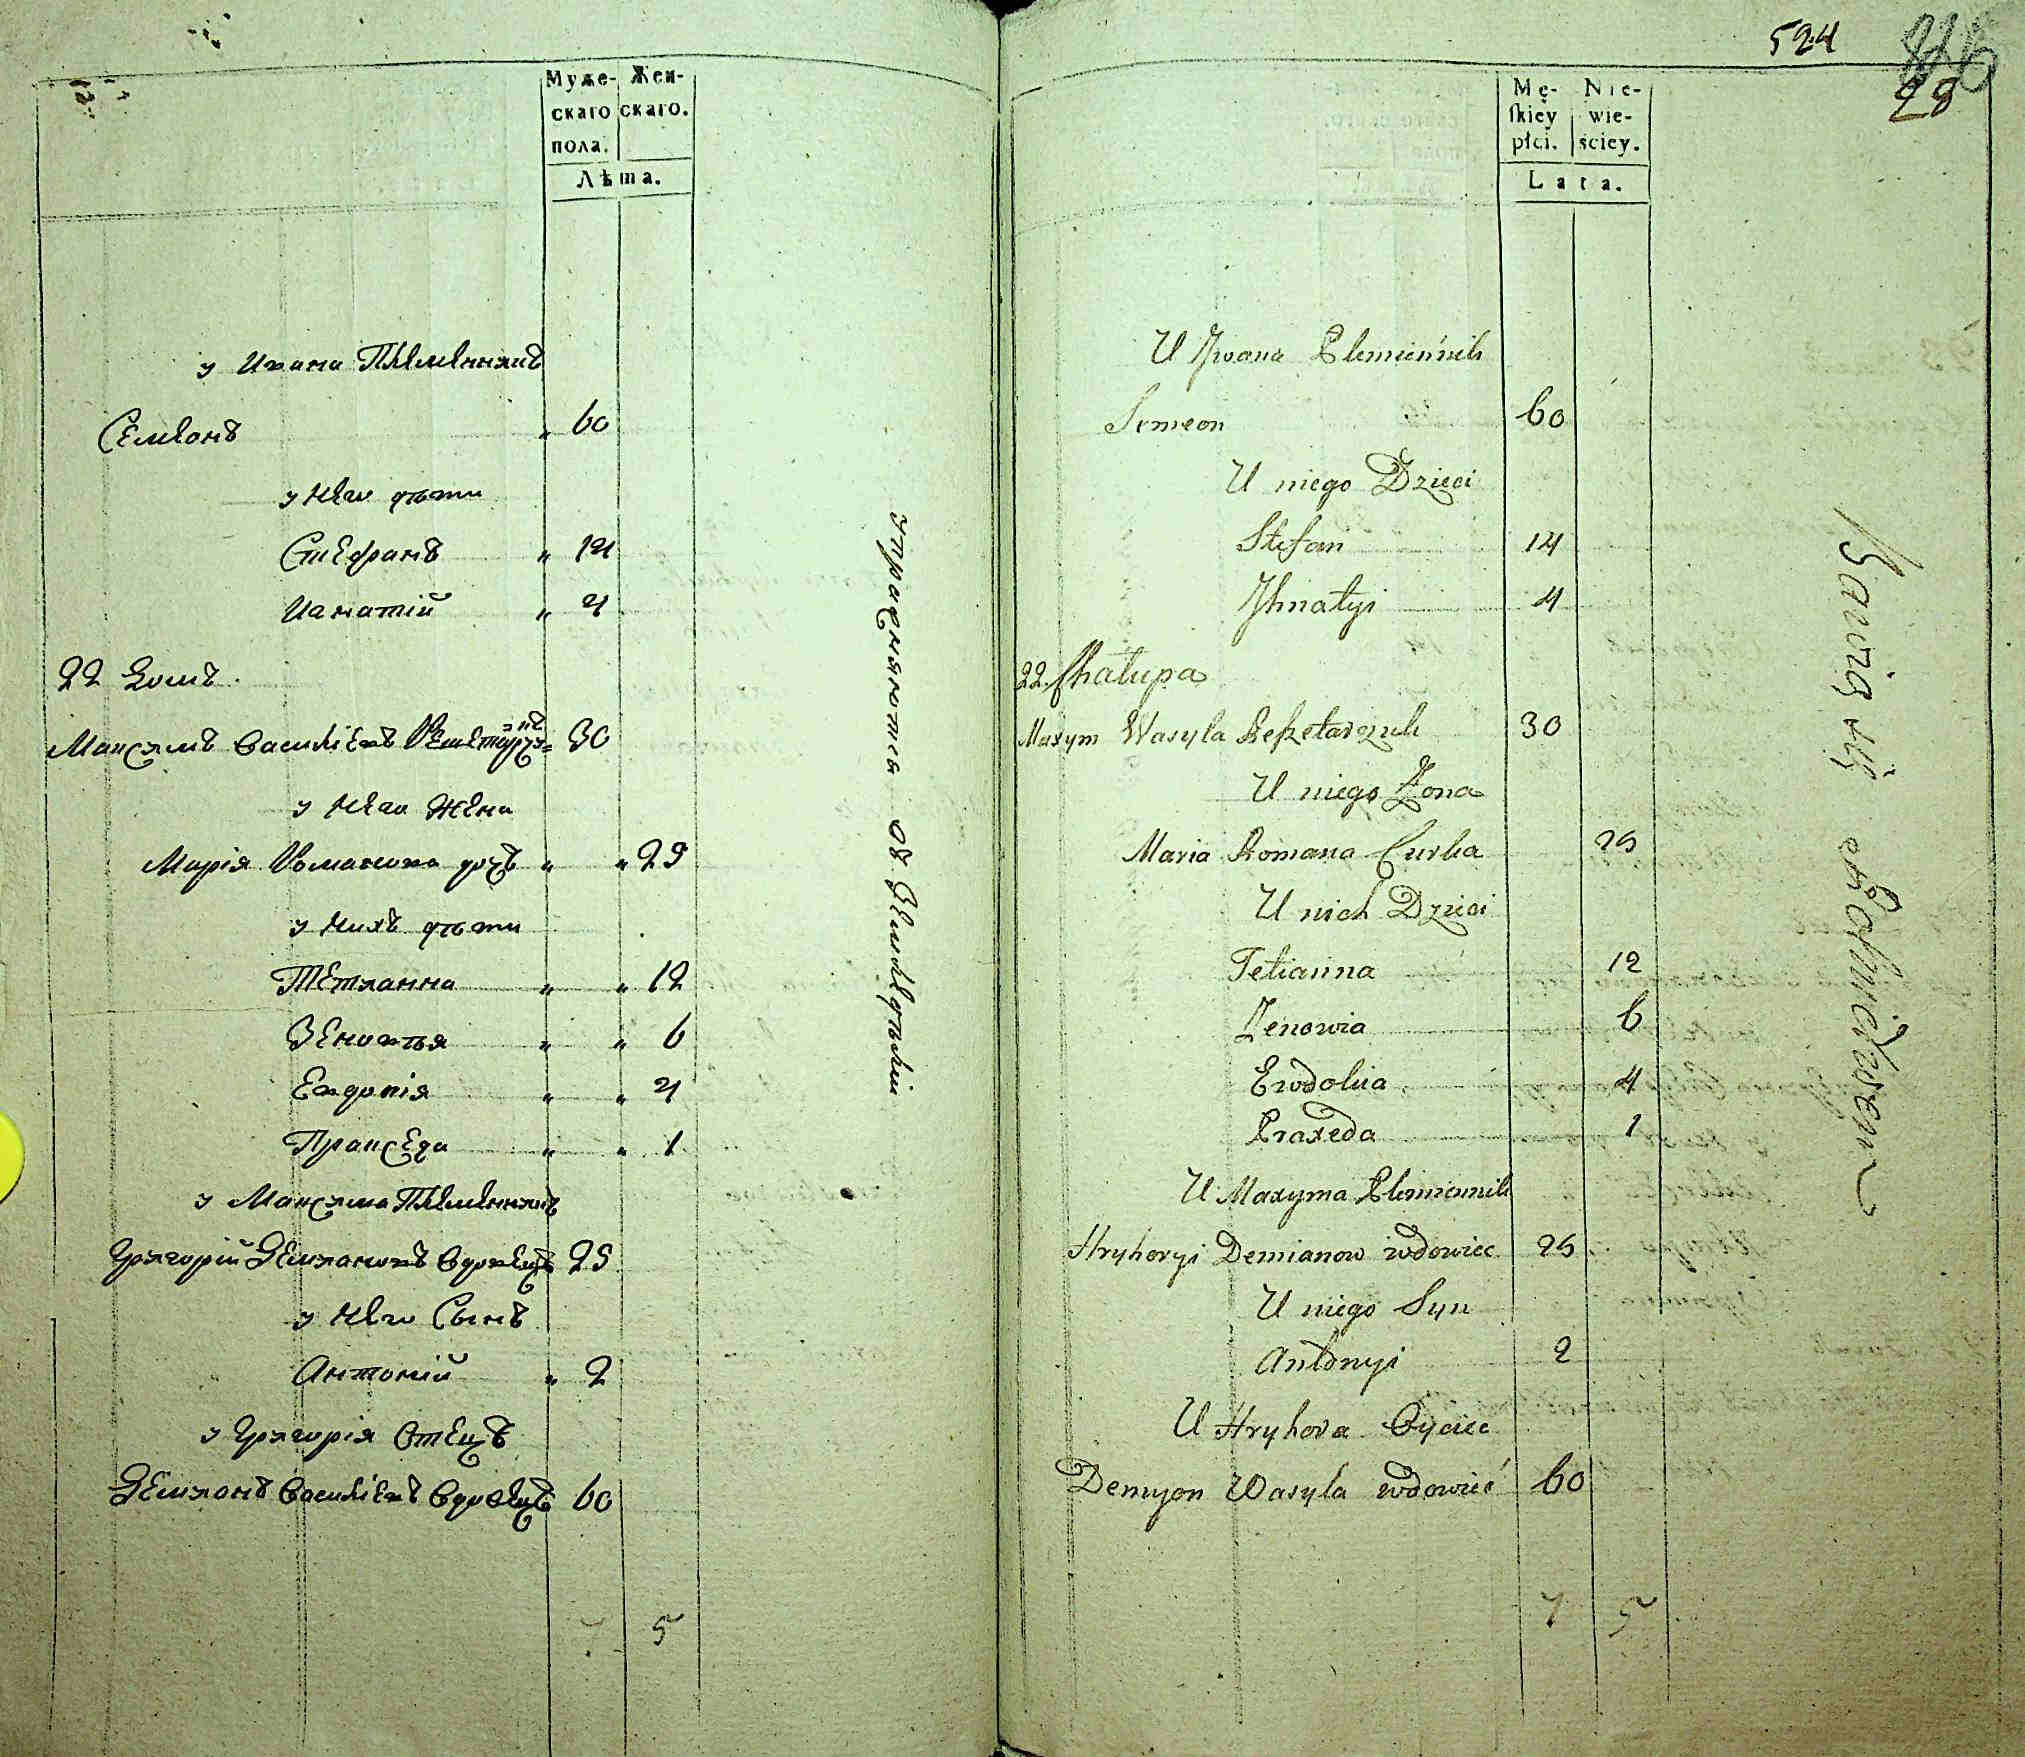 Муже-
скаго
пола.
Жен-
скаго.
Лѣта.
у Ивана Племенникъ
Семіонъ " 60
у него дѣти
Стефанъ " 14
Игнатій " 4
22 Домъ.
Максимъ Василіевъ Решетарчукъ 30
у него жена
Марія Романова дочь " " 25
у нихъ дѣти
Тетіанна " " 12
Зеновѣя " " 6
Евдокія " " 4
Пракседа " " 1
у Максима Племенникъ
Григорій Деміановъ вдовецъ 25
у него Сынъ
Антоній " 2
у Григорія Отецъ
Деміонъ Василіевъ вдовецъ 60
7 5
упражняются въ Земледѣліи
524
28
Mę-
skiey
płci.
Nie-
wie-
ściey.
Lata.
U Jwana Plemiennik
Simeon 60
U niego Dzieci
Stefan 14
Jhnatyi 4
22. Chałupa
Maxym Wasyla Reszetarczuk 30
U niego Żona
Maria Romana Curka 25
U nich Dzieci
Tetianna 12
Zenowia 6
Ewdokia 4
Praxeda 1
U Maxyma Plemiennik
Hryhoryi Demianow wdowiec 25
U niego Syn
Antonyi 2
U Hryhora Oyciec
Demyon Wasyla wdowieć 60
7 5
Bawią się Rolnictwem